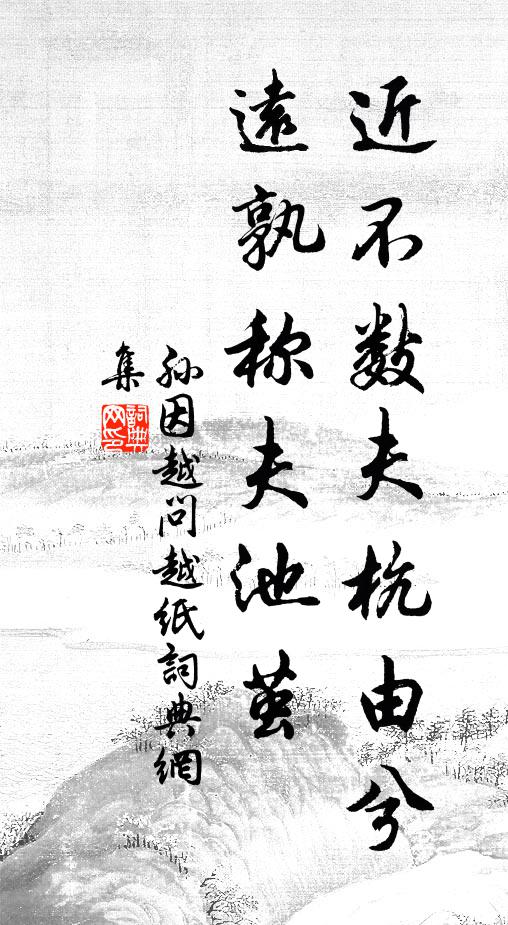 近不数夫杭由兮
遠孰称夫池茧
孙因越问越纸詞典網
集
詞典
网印